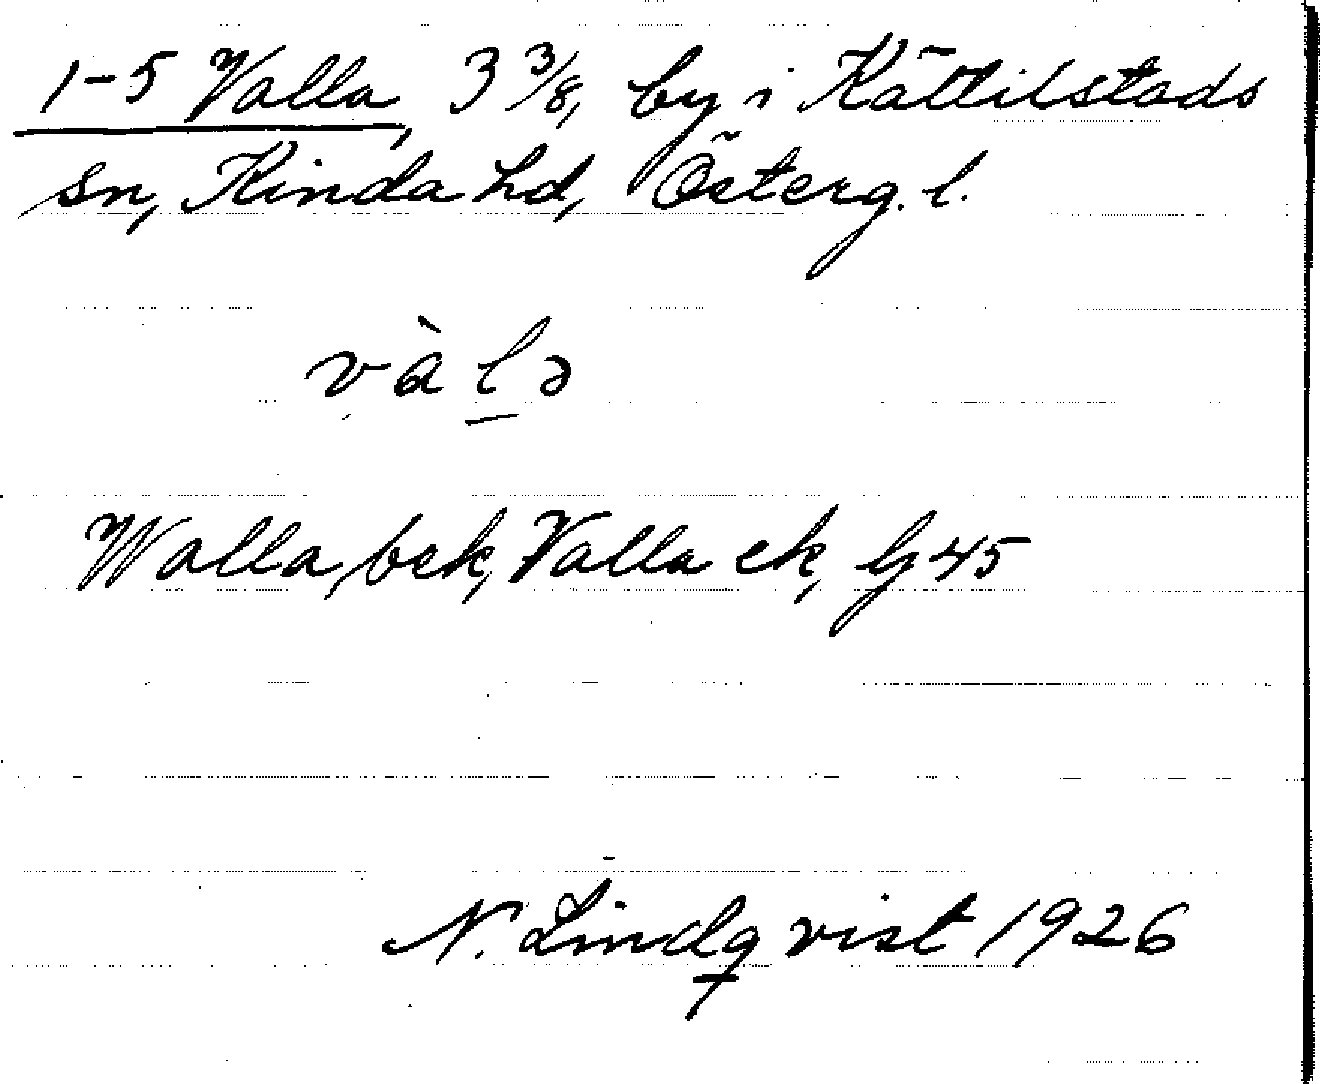 1-5 Valla, 3 3/8, by i Kättilstads
sn, Kinda hd, Österg. l.
vàl̲ə
Walla, bek, Valla ek, G 45
N. Lindqvist 1926